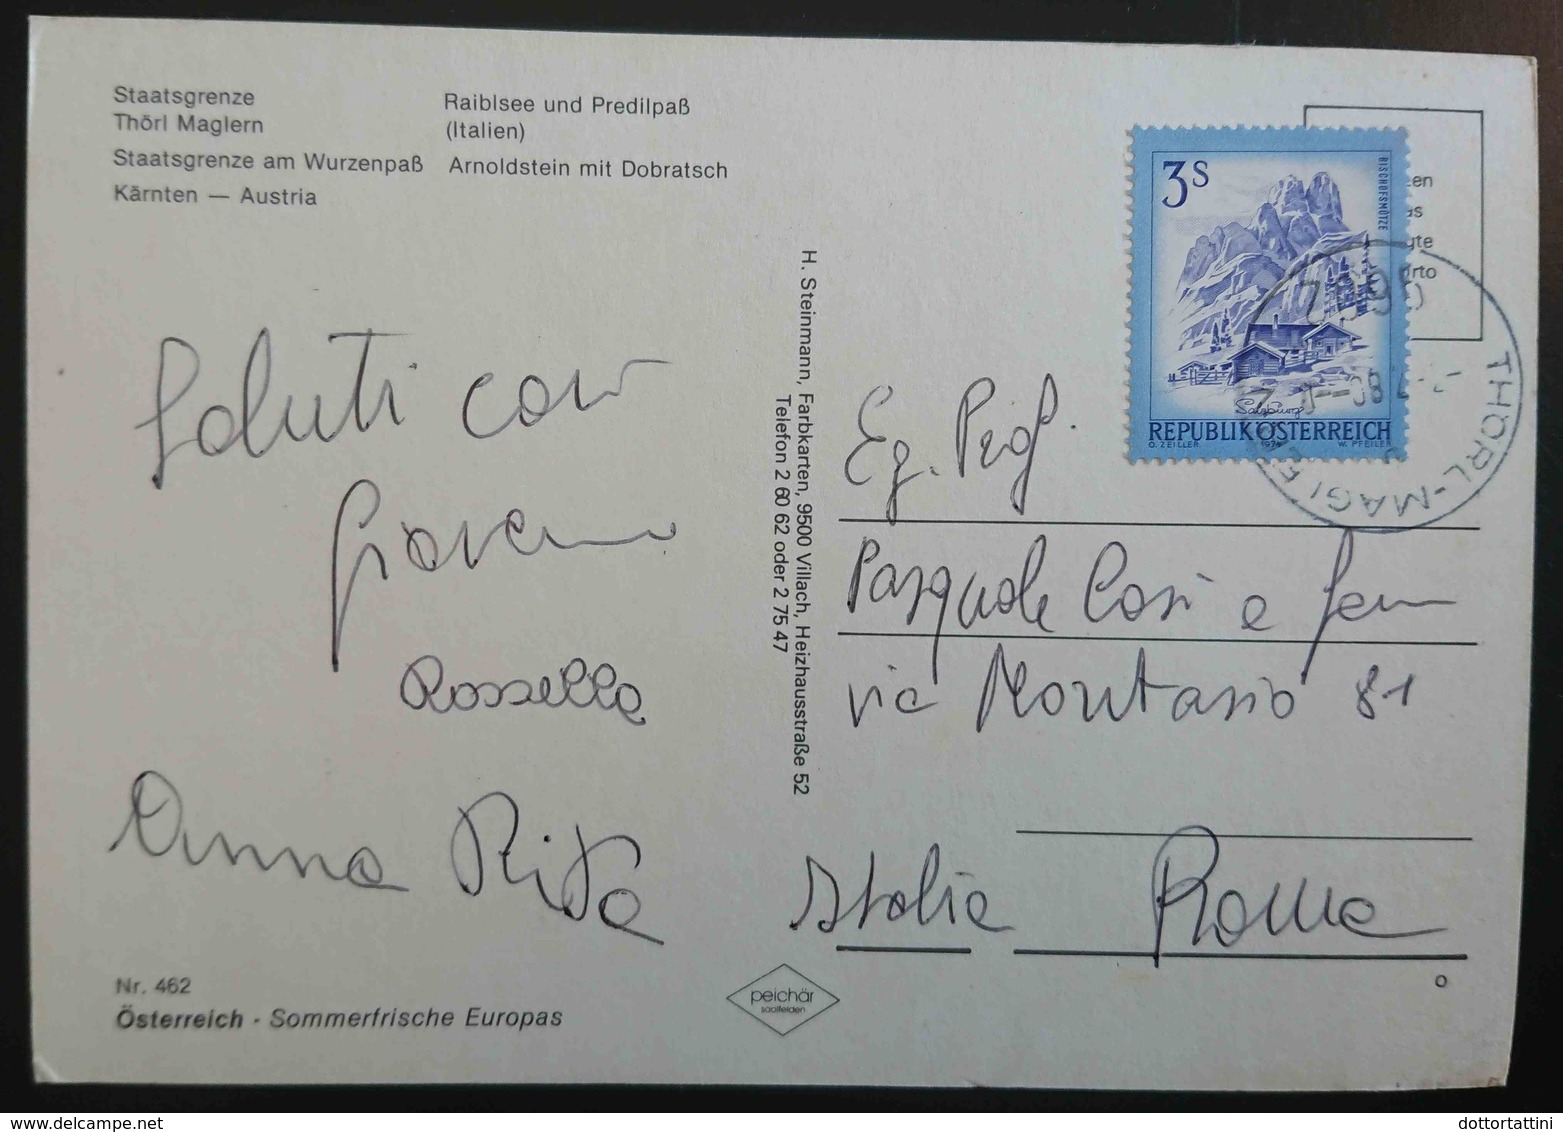 Staatsgrenze
Thörl Maglern
Staatsgrenze am Wurzenpaß
Kärnten — Austria
Raiblsee und Predilpaß
(Italien)
Arnoldstein mit Dobratsch
Saluti cari
Giovanni
Rossella
Anna Rita
Nr. 462
Österreich · Sommerfrische Europas
H. Steinmann, Farbkarten, 9500 Villach, Heizhausstraße 52
Telefon 2 60 62 oder 2 75 47
peichär
saalfelden
3S
BISCHOFSMÜTZE
Salzburg
REPUBLIK ÖSTERREICH
O. ZEILLER 1974 W. PFEILER
THÖRL-MAGLERN
Eg. Prof.
Pasquale Cosi e fam
via Montasio 81
Italia Roma
dottortattini